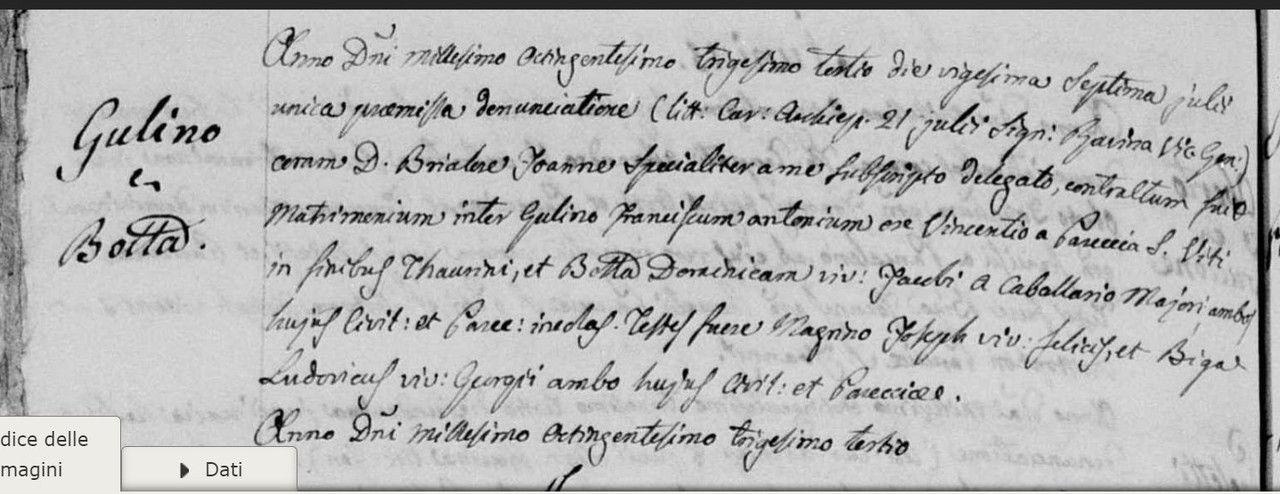 Anno Dñi millesimo octingentesimo trigesimo tertio die vigesima septima julii
Gulino
et
Botta.
unica præmissa denunciatione (litt: Cur: Archiep. 21 julii sign: Ravina Vic Gen:)
coram D. Joanne specialiter a me subscripto delegato, contractum fuit
Matrimonium inter Gulino Franciscum antonium ex Vincentio a Parecia S. Viti
in finibus Thaurini, et Botta Dominicam viv: Jacobi a Caballario Majori ambos
hujus Civit: et Paræc: incolas. Testes fuere Magnino Joseph viv: felicis, et Biga
Ludovicus viv: Georgii ambo hujus Civit: et Pareciæ.
Anno Dñi millesimo octingentesimo trigesimo tertio
dice delle
magini
Dati